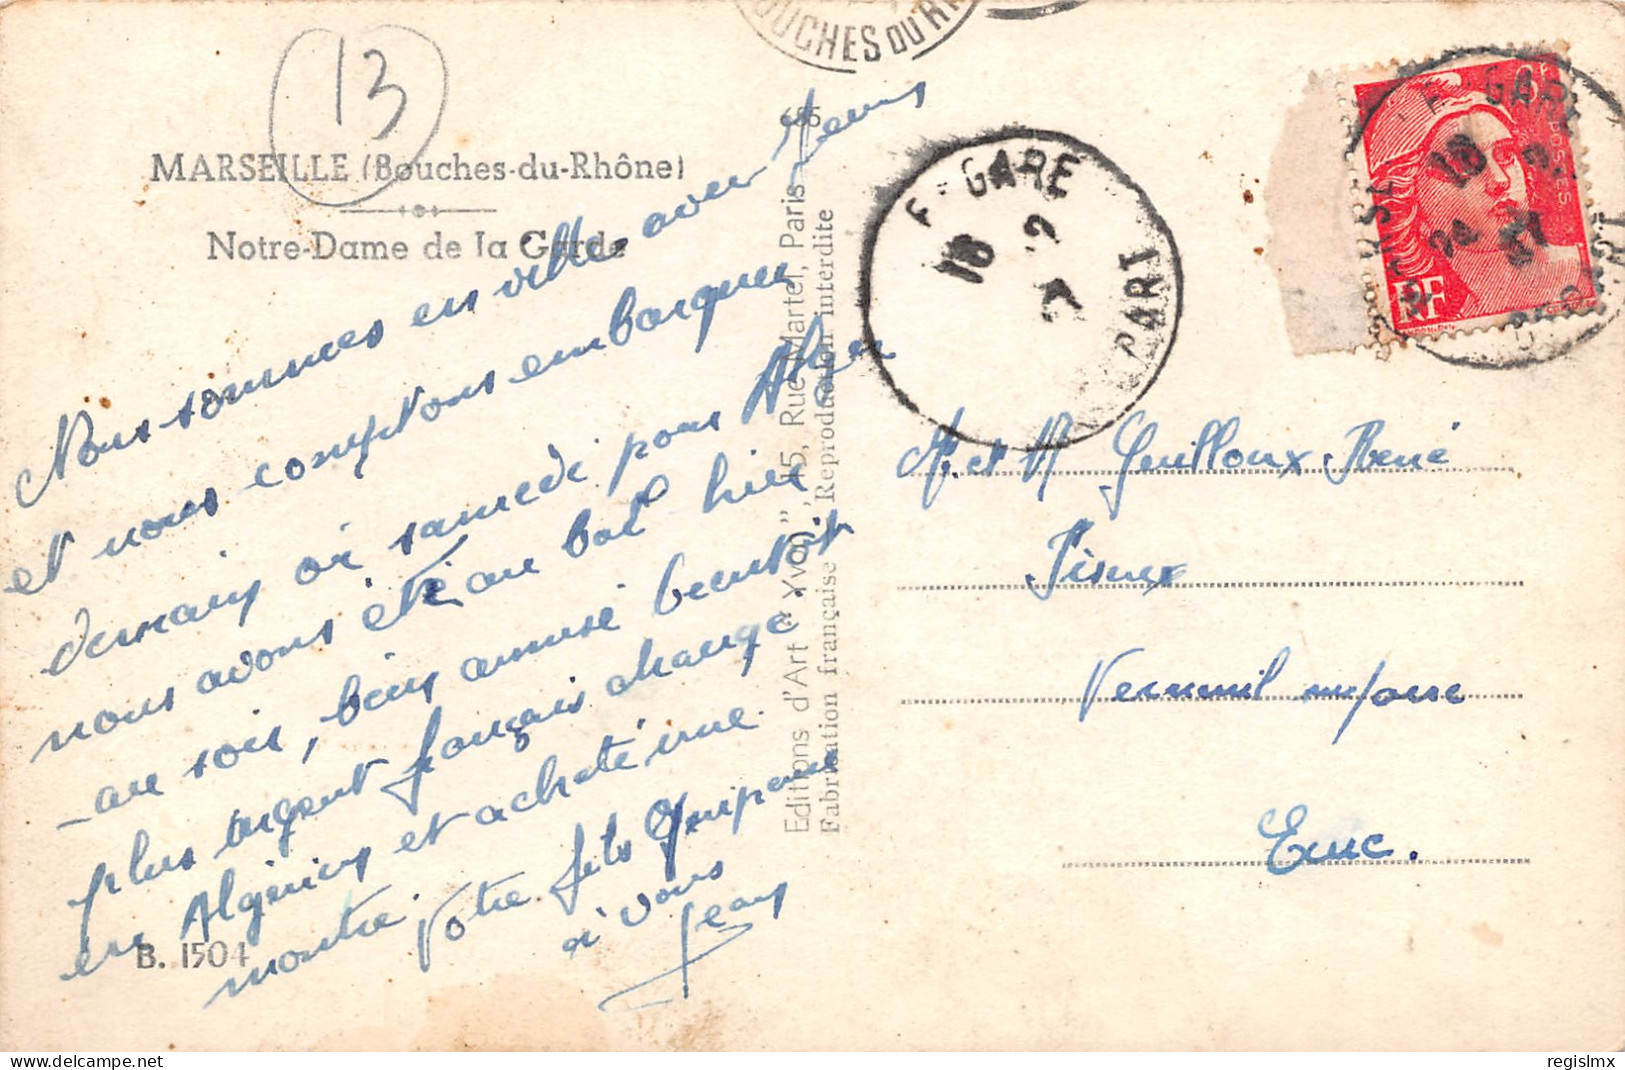 13
MARSEILLE (Bouches-du-Rhône)
Notre-Dame de la Garde
Nous sommes en ville avec
et nous comptons embarquer
demain où samedi pour Alger
nous avons été au bal hier
au soir, bien amusé
plus argent français change
en Algérien et acheté une
montre. Votre fils qui pense
a vous
Jean
B. 1504
Editions d'Art "Yvon", 15, Rue Martel, Paris
Fabrication française Reproduction interdite
BOUCHES DU RH
F - GARE
18 2
GARE
18
RF
M. et M Guilloux René
Piseux
Verneuil sur/avre
Eure.
regislmx